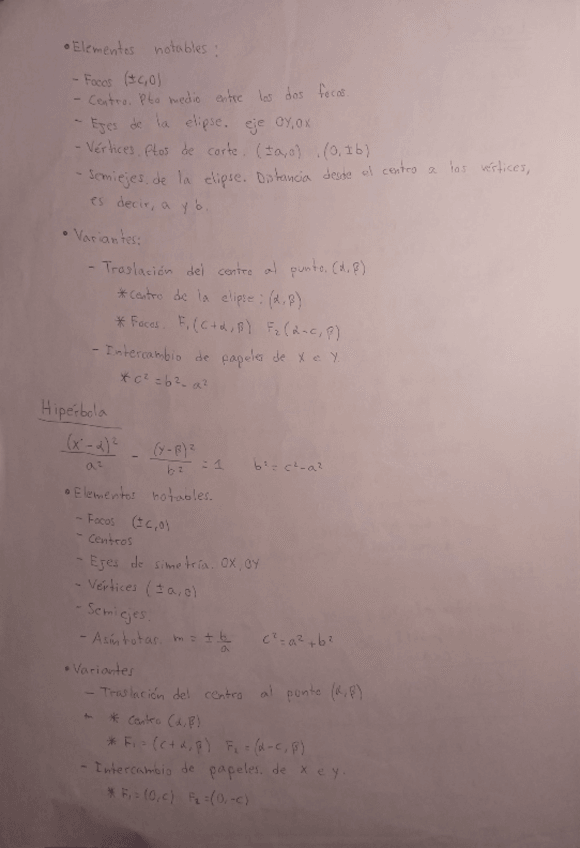 • Elementos notables:
- Focos (±c,0)
- Centro. Pto medio entre los dos focos.
- Ejes de la elipse. eje OY, OX
- Vértices. Ptos de corte. (±a,0) . (0,±b)
- Semiejes de la elipse. Distancia desde el centro a los vértices,
es decir, a y b.
• Variantes:
- Traslación del centro al punto. (α,β)
* centro de la elipse: (α,β)
* Focos. F₁(c+α,β) F₂(α-c,β)
- Intercambio de papeles de X e Y.
* c² = b² - a²
Hipérbola
(x-α)²/a² - (y-β)²/b² = 1 b² = c² - a²
• Elementos notables.
- Focos (±c,0)
- Centros
- Ejes de simetría. OX, OY
- Vértices (±a,0)
- Semiejes.
- Asíntotas. m = ± b/a c² = a² + b²
• Variantes
- Traslación del centro al punto (α,β)
- * centro (α,β)
* F₁ = (c+α,β) F₂ = (α-c,β)
- Intercambio de papeles. de X e Y.
* F₁ = (0,c) F₂ = (0,-c)